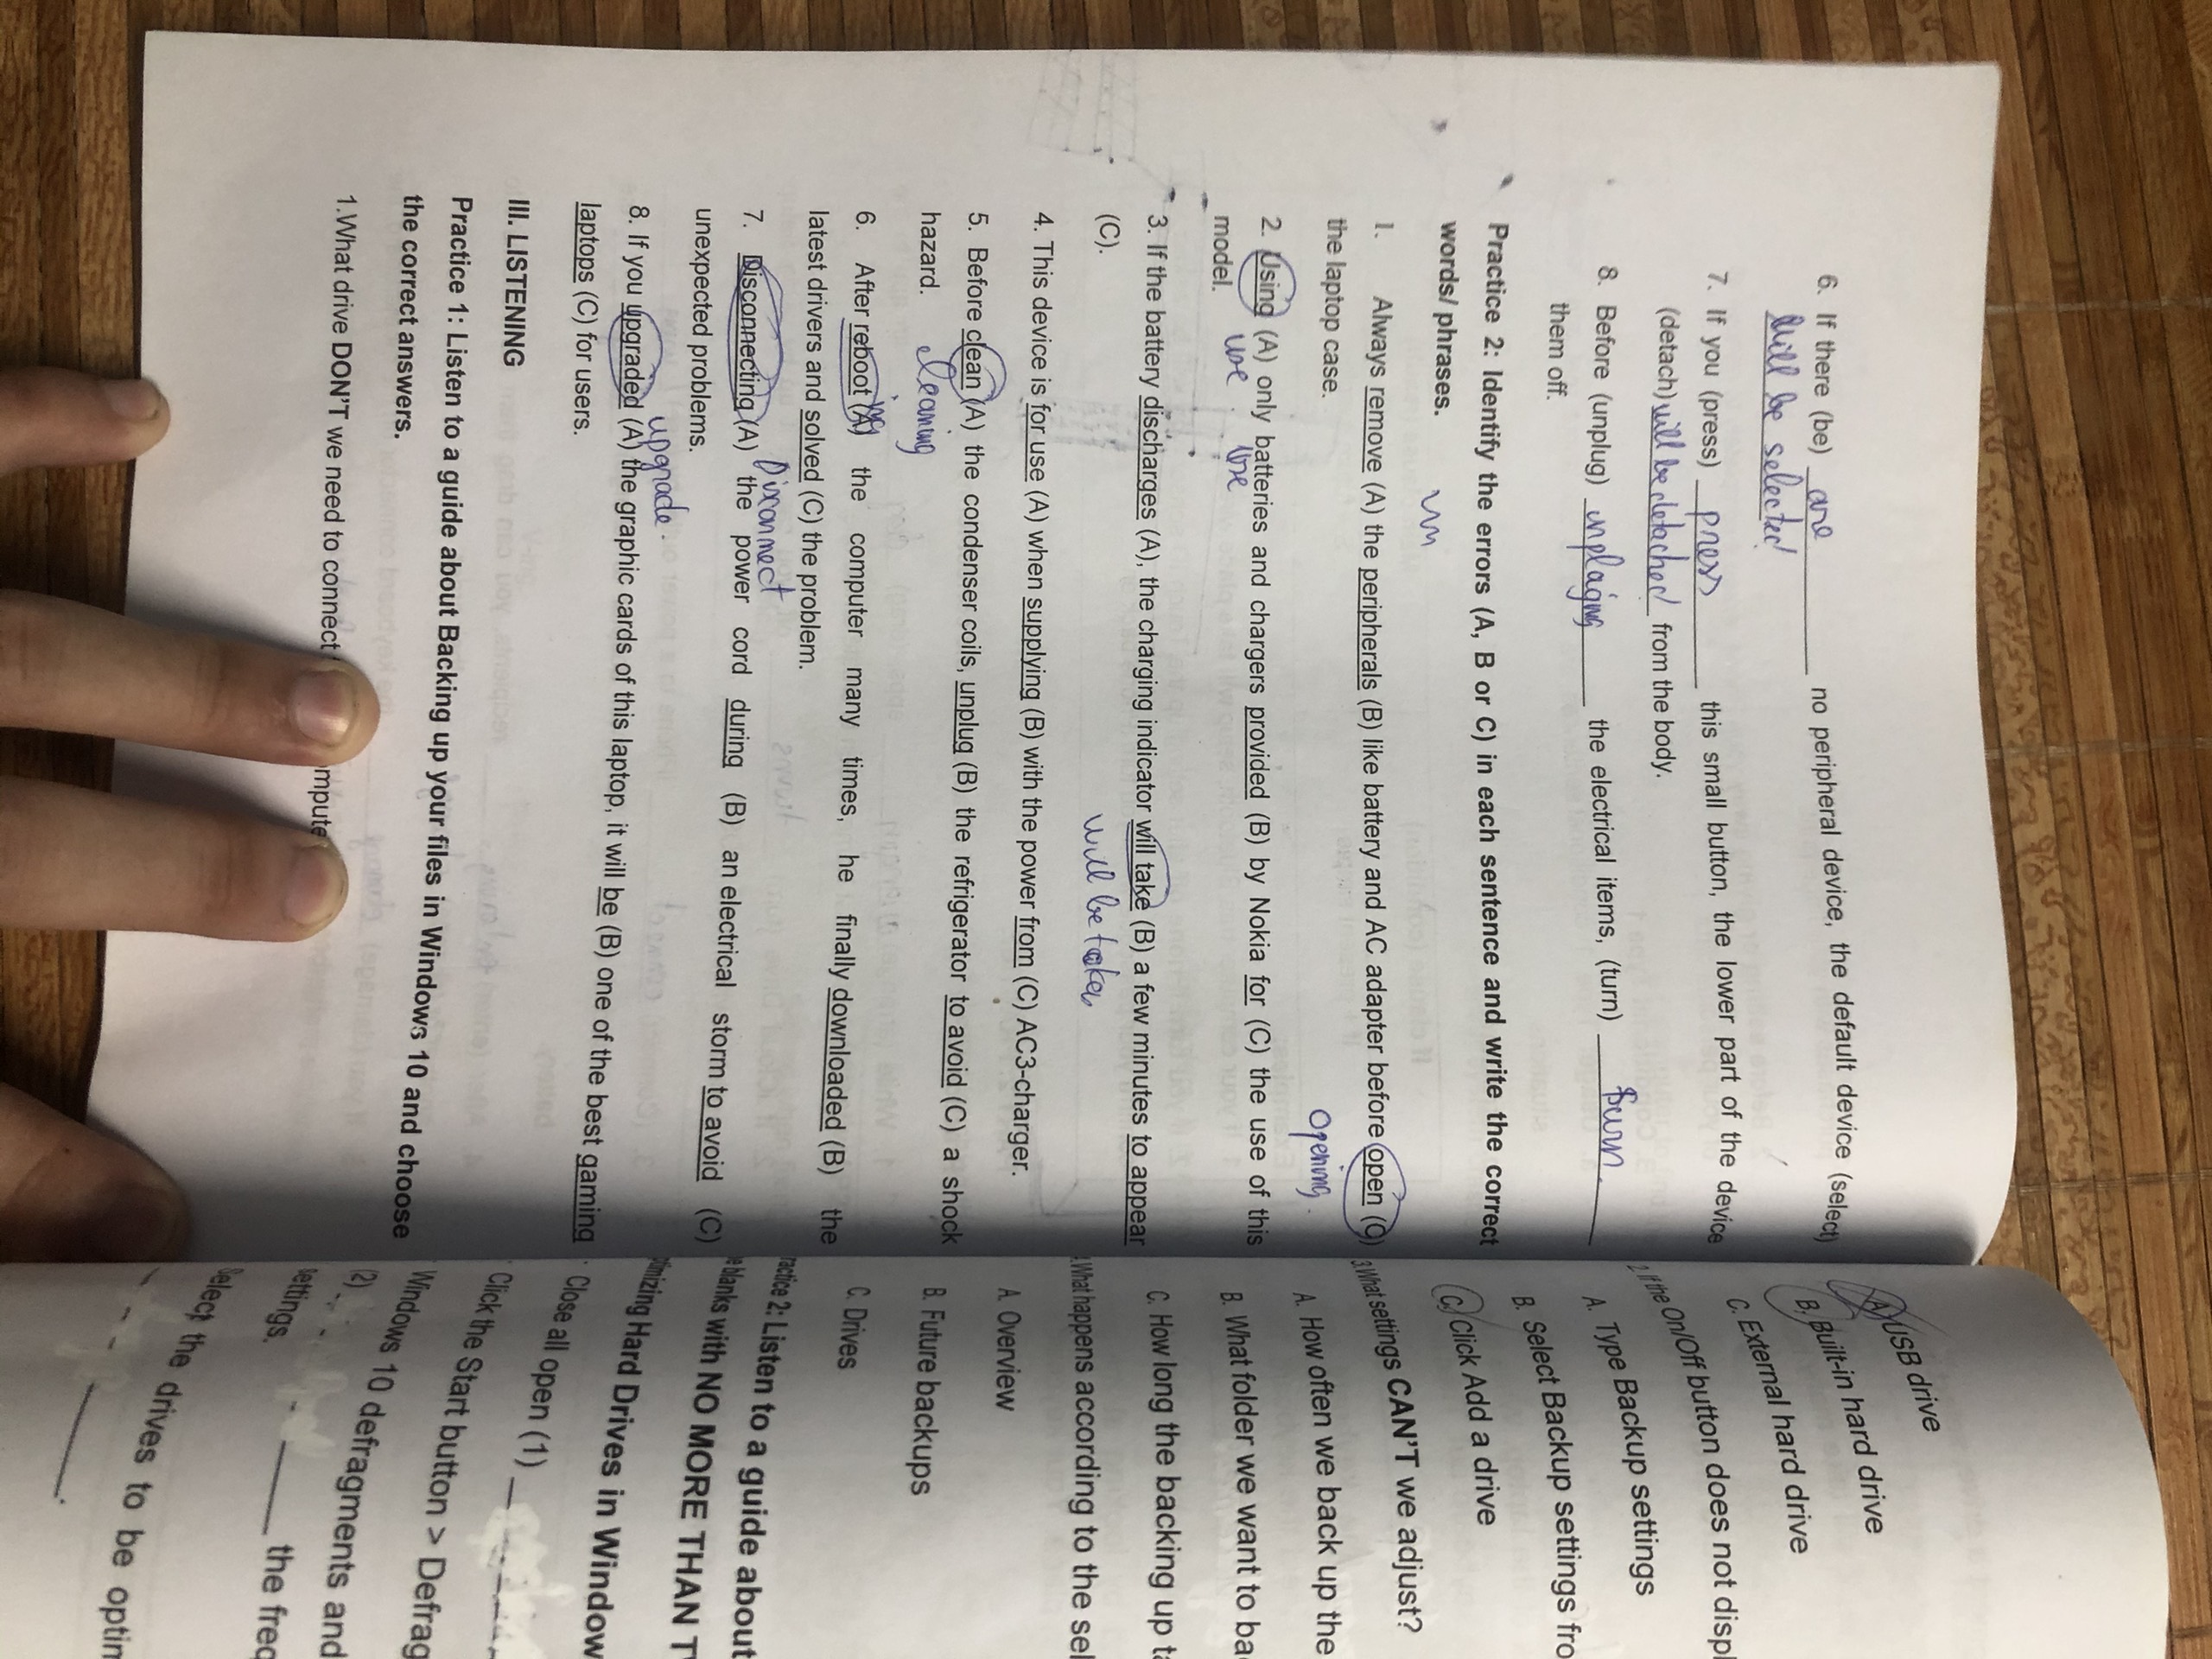 6. If there (be) are no peripheral device, the default device (select)
will be selected
7. If you (press) press this small button, the lower part of the device
(detach) will be detached from the body.
8. Before (unplug) unplaging the electrical items, (turn) turn
them off.
Practice 2: Identify the errors (A, B or C) in each sentence and write the correct
words/ phrases.
1. Always remove (A) the peripherals (B) like battery and AC adapter before open (C)
the laptop case.
Opening.
2. Using (A) only batteries and chargers provided (B) by Nokia for (C) the use of this
use use
model.
3. If the battery discharges (A), the charging indicator will take (B) a few minutes to appear
(C).
will be taken
4. This device is for use (A) when supplying (B) with the power from (C) AC3-charger.
5. Before clean (A) the condenser coils, unplug (B) the refrigerator to avoid (C) a shock
hazard.
cleaning
ing
6. After reboot (A) the computer many times, he finally downloaded (B) the
latest drivers and solved (C) the problem.
Disconnect
7. Disconnecting (A) the power cord during (B) an electrical storm to avoid (C)
unexpected problems.
upgrade.
8. If you upgraded (A) the graphic cards of this laptop, it will be (B) one of the best gaming
laptops (C) for users.
III. LISTENING
Practice 1: Listen to a guide about Backing up your files in Windows 10 and choose
the correct answers.
1.What drive DON'T we need to connect
A. USB drive
B. Built-in hard drive
C. External hard drive
2. If the On/Off button does not displ
A. Type Backup settings
B. Select Backup settings fro
C. Click Add a drive
3.What settings CAN'T we adjust?
A. How often we back up the
B. What folder we want to ba
C. How long the backing up ta
.What happens according to the sel
A. Overview
B. Future backups
C. Drives
ractice 2: Listen to a guide about
e blanks with NO MORE THAN TW
ptimizing Hard Drives in Window
Close all open (1)
Click the Start button > Defrag
Windows 10 defragments and
(2) the freq
settings.
Select the drives to be optim